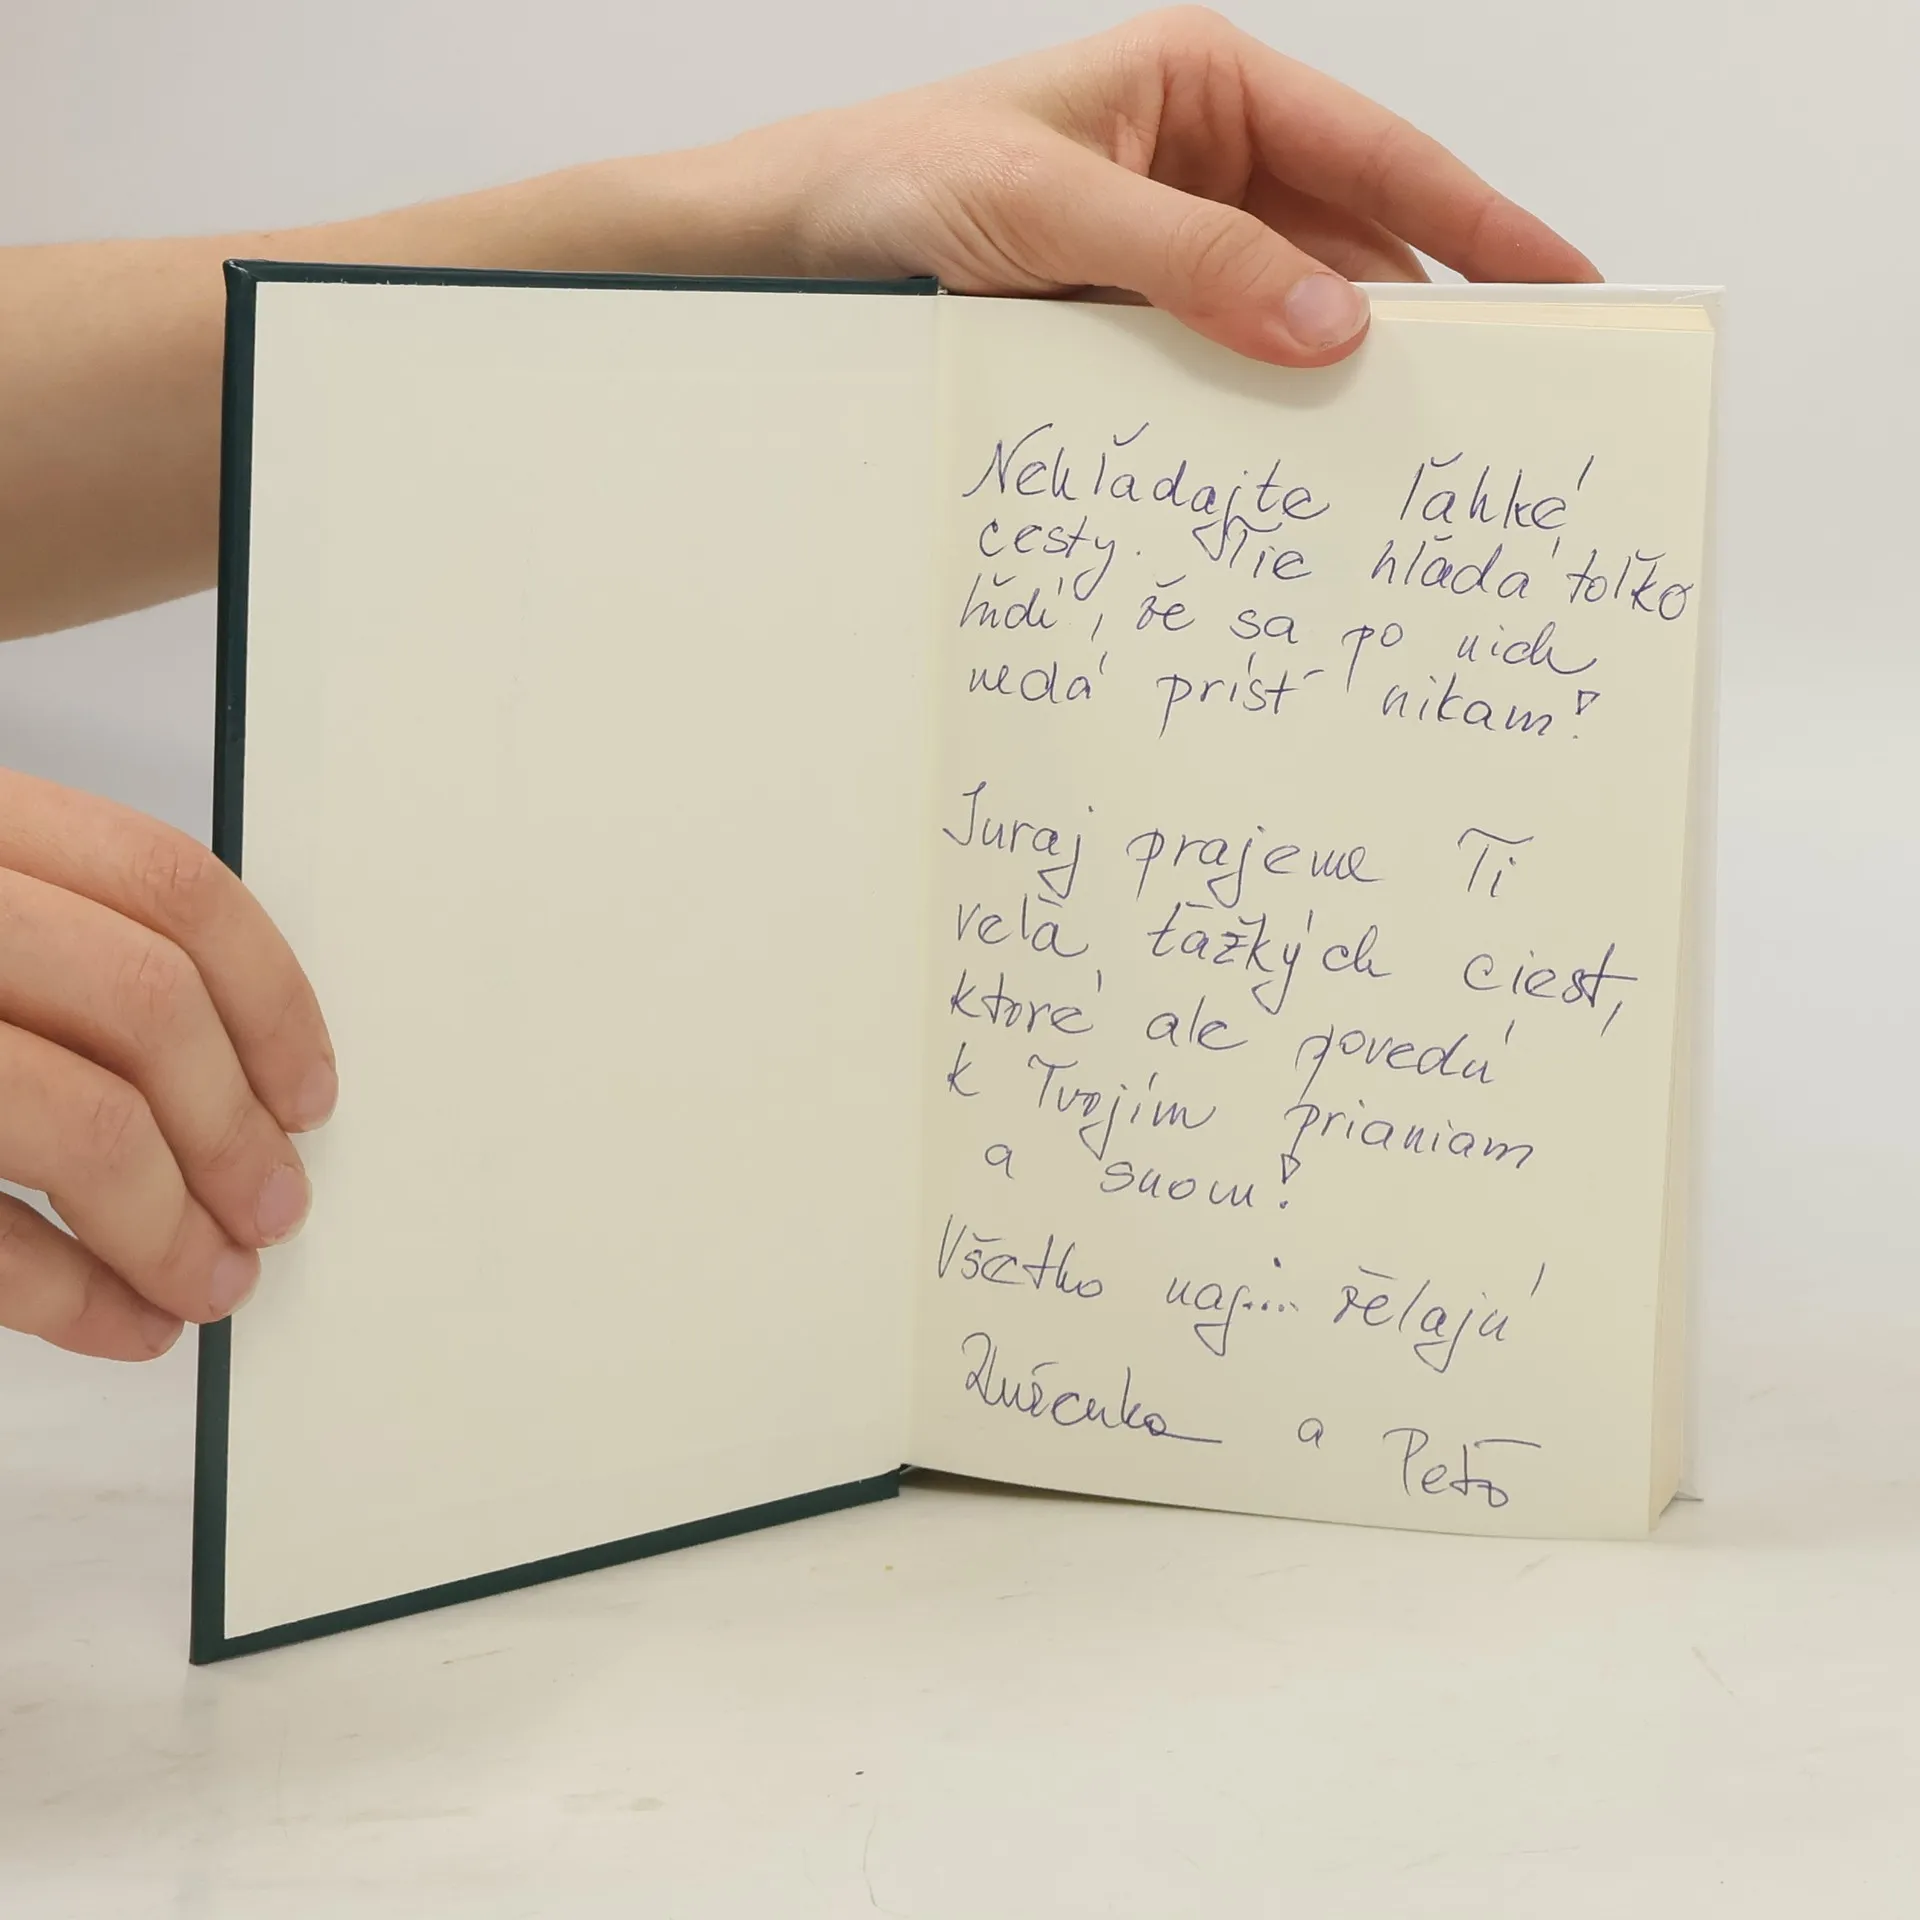 Nehľadajte ľahké
cesty. Tie hľadá toľko
ľudí, že sa po nich
nedá prísť nikam!
Juraj prajeme Ti
veľa ťažkých ciest,
ktoré ale povedú
k Tvojím prianiam
a snom!
Všetko naj... želajú
Zuzenka a Peťo